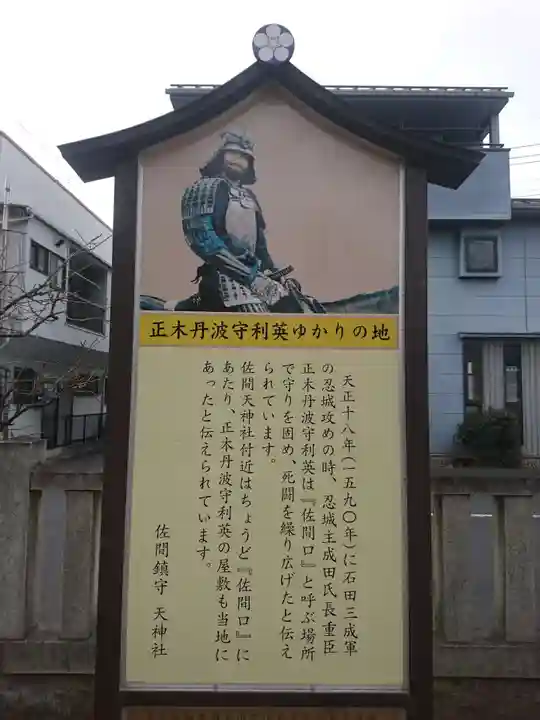 正木丹波守利英ゆかりの地
天正十八年(一五九〇年)に石田三成軍
の忍城攻めの時、忍城主成田氏長重臣
正木丹波守利英は『佐間口』と呼ぶ場所
で守りを固め、死闘を繰り広げたと伝え
られています。
佐間天神社付近はちょうど『佐間口』に
あたり、正木丹波守利英の屋敷も当地に
あったと伝えられています。
佐間鎮守 天神社